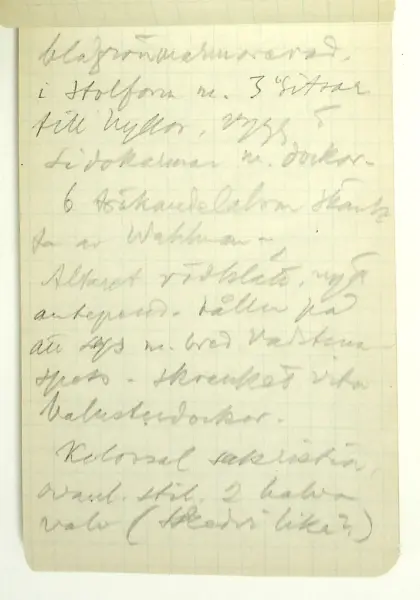 blågrönmarmorerad,
i stolform m. 3 sitsar
till hyllor, rygg i
sidokarmar m. dockor -
6 träkandelabrar skänk
ta av Wahlman -
Altaret rödklätt, nya
antepend. håller på
att sys m. bred Vadstena
spets - skranket vita
balusterdockor.
Kolossal sakristia,
ovanl. stil. 2 halva
valv (Skedvi lika?)